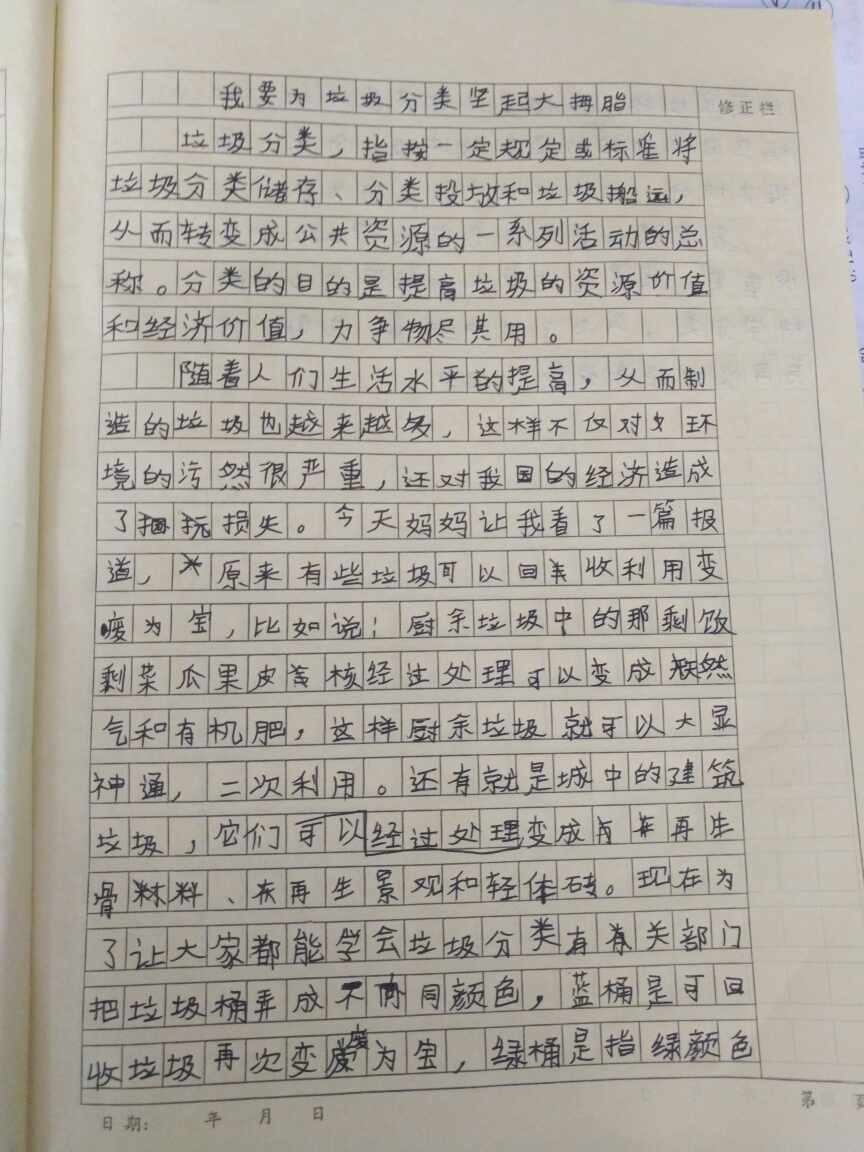 我要为垃圾分类坚起大拇脂
修正栏
垃圾分类，指按一定规定或标准将
垃圾分类储存、分类投放和垃圾搬运，
从而转变成公共资源的一系列活动的总
称。分类的目的是提高垃圾的资源价值
和经济价值，力争物尽其用。
随着人们生活水平的提高，从而制
造的垃圾也越来越多，这样不仅对环
境的污然很严重，还对我国的经济造成
了损失。今天妈妈让我看了一篇报
道，原来有些垃圾可以回收利用变
废为宝，比如说；厨余垃圾中的那剩饭
剩菜瓜果皮核经过处理可以变成然
气和有机肥，这样厨余垃圾就可以大显
神通，二次利用。还有就是城中的建筑
垃圾，它们可以经过处理变成再生
骨料、再生景观和轻体砖。现在为
了让大家都能学会垃圾分类有关部门
把垃圾桶弄成不同颜色，蓝桶是可回
收垃圾再次变废为宝，绿桶是指绿颜色
日期： 年 月 日
第 页